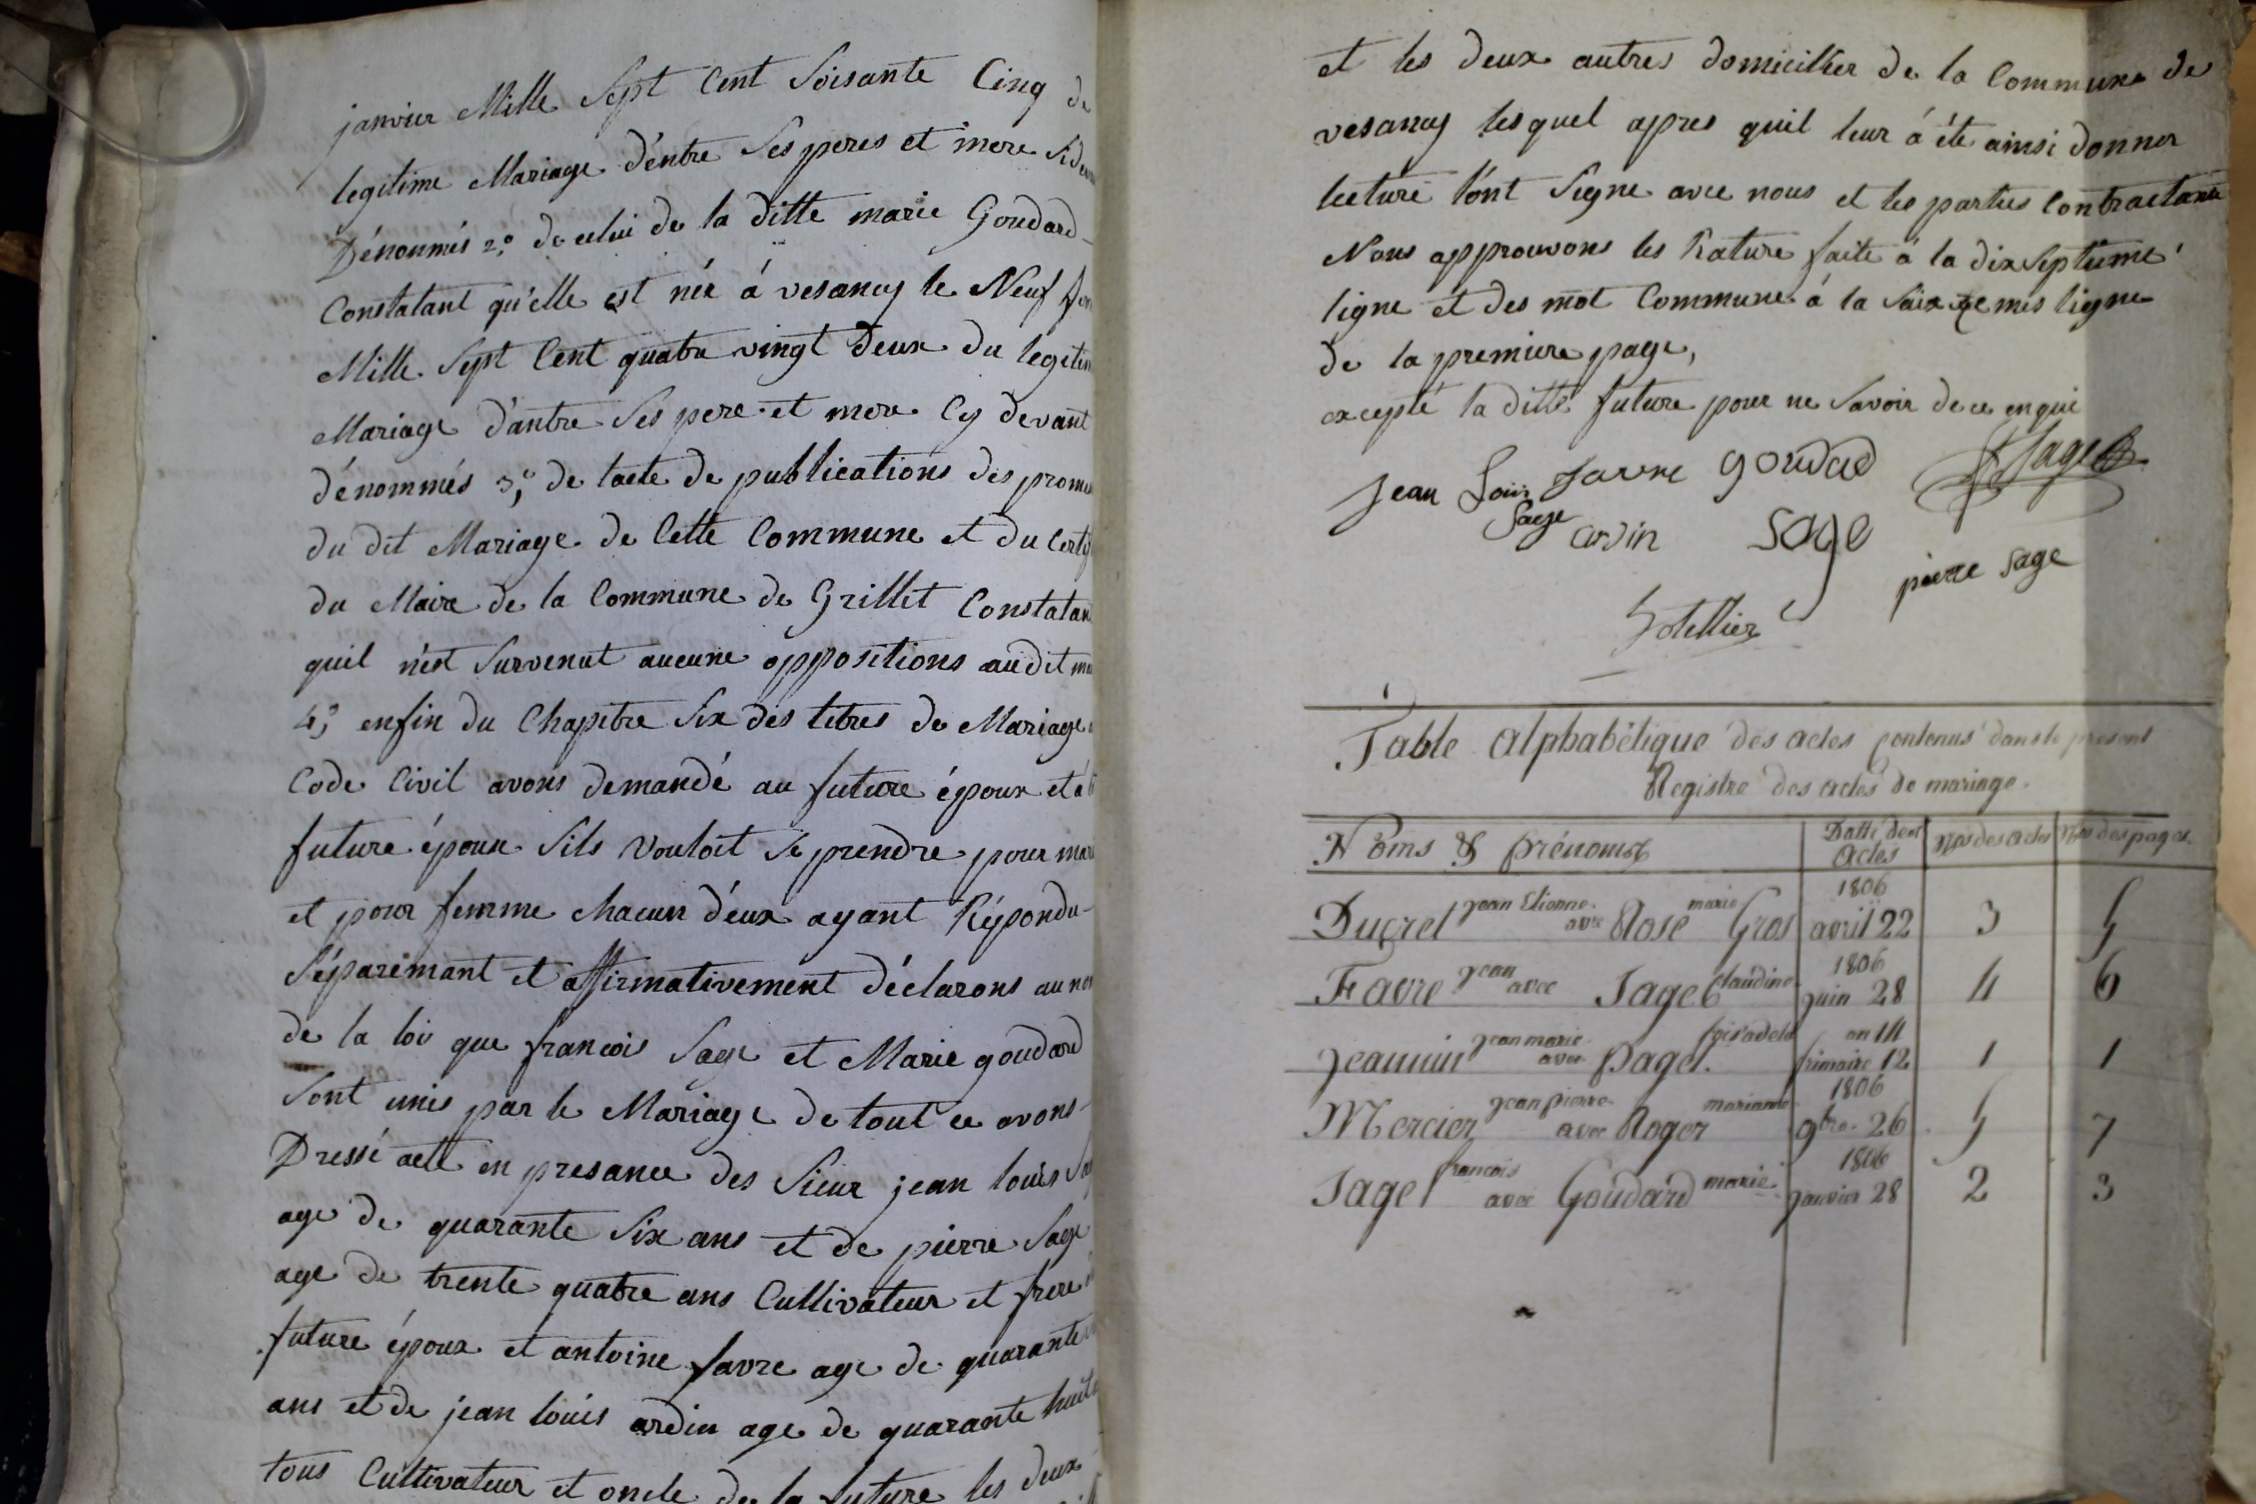 janvier Mille Sept Cent Soisante Cinq de
legitime Mariage d'entre Ses peres et mere
Dénoumés 2.° de celui de la ditte marie Goudard
Constatant qu'elle est née á vesancy le Neuf
Mille Sept Cent quatre vingt Deux du legitim
Mariage d'antre Ses pere et mere Cy devant
dénommés 3,° de lacte de publications des prome
du dit Mariage de Cette Commune et du Certif
du Maire de la Commune de Grillet Constatan
quil n'est Survenut aucune oppositions audit ma
4,° enfin du Chapitre Six des titres de Mariage
Code Civil avons demandé au future époux et á
future épouse Sils vouloit Se prendre pour mar
et pour femme chacun d'eux ayant Répondu
Séparémant et affirmativement déclarons au no
de la loi que francois Sage et Marie goudard
Sont unis par le Mariage de tout ce avons
Dressé acte en presance des Sieur jean louis Sa
age de quarante Six ans et de pierre Sage
age de trente quatre ans Cultivateur et frere
future époux et antoine favre age de quarante
ans et de jean louis ardin age de quarante huit
tous Cultivateur et oncle de la future les deux
et les deux autres domicillier de la Commune de
vesancy lesquel apres quil leur á été ainsi donner
lecture l'ont Signe avec nous et les parties Contractante
Nous approuvons les Rature faite á la dix Septieme
ligne et des mot Commune á la ligne
de la premiere page,
excepté la ditte future pour ne Savoir de ce enqui
jean Louis Sage
favre goudard
Sage
arvin Sage
pierre Sage
Table Alphabétique des actes Contenus dans le present
Registre des actes de mariage.
Noms & prénoms
Datte des Actes
Nos des actes
Nos des pages.
Ducret jean Etienne avec Rose marie Gros 1806 avril 22 3 5
Favre jean avec Sage Claudine 1806 juin 28 4 6
Jeannin jean marie avec Paget. an 14 frimaire 12 1 1
Mercier jean pierre avec Roger marianne 1806 9bre 26 5 7
Sage francois avec Goudard marie 1806 janvier 28 2 3